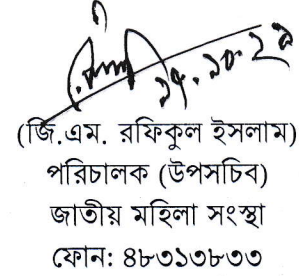 (জি.এম. রফিকুল ইসলাম)
পরিচালক (উপসচিব)
জাতীয় মহিলা সংস্থা
ফোন: ৪৮৩১৩৮৩৩